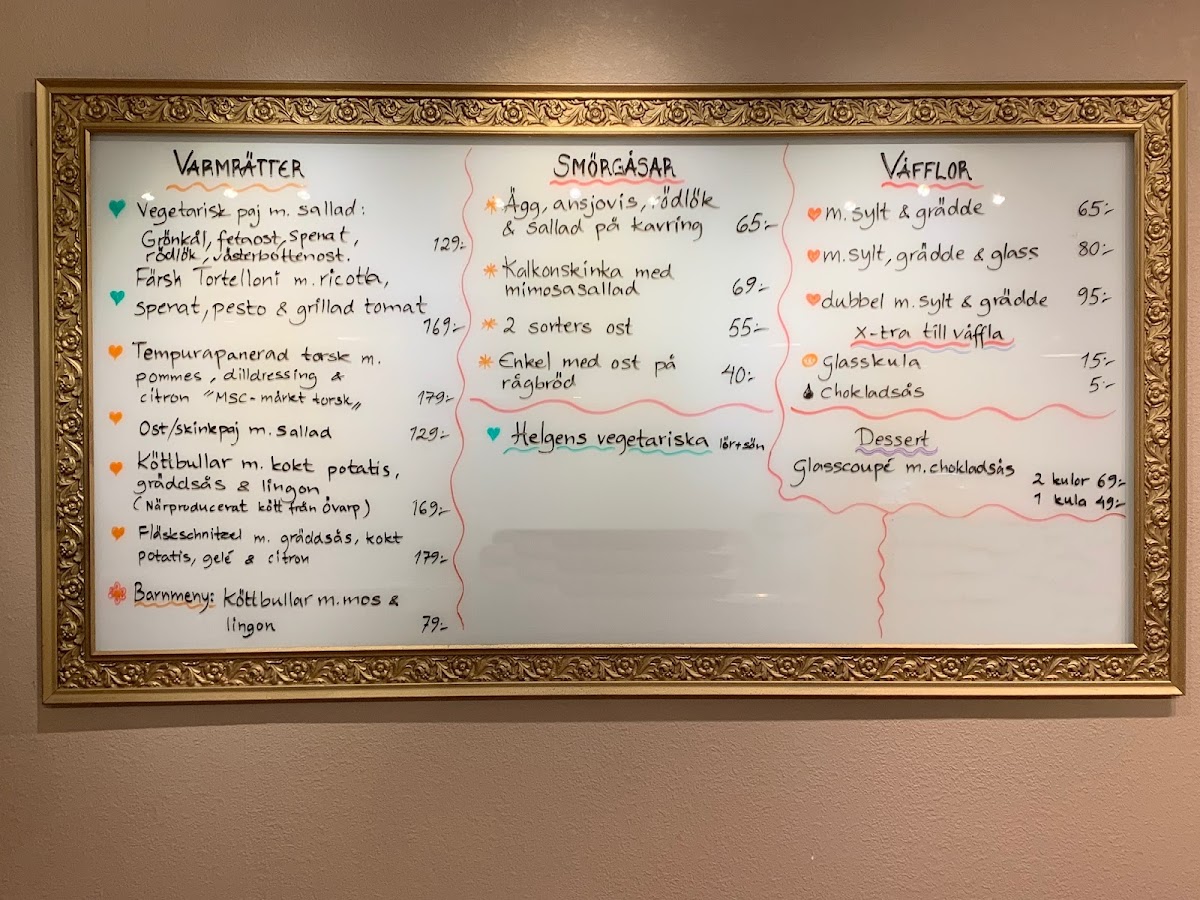 VARMRÄTTER
Vegetarisk paj m. sallad:
Grönkål, fetaost, spenat,
rödlök, västerbottenost. 129:-
Färsk Tortelloni m. ricotta,
spenat, pesto & grillad tomat
169:-
Tempurapanerad torsk m.
pommes, dilldressing &
citron "MSC-märkt torsk" 179:-
Ost/skinkpaj m. sallad 129:-
Köttbullar m. kokt potatis,
gräddsås & lingon
(Närproducerat kött från Övarp) 169:-
Fläskschnitzel m. gräddsås, kokt
potatis, gelé & citron 179:-
Barnmeny: Köttbullar m. mos &
lingon 79:-
SMÖRGÅSAR
Ägg, ansjovis, rödlök
& sallad på kavring 65:-
Kalkonskinka med
mimosasallad 69:-
2 sorters ost 55:-
Enkel med ost på
rågbröd 40:-
Helgens vegetariska lör+sön
VÅFFLOR
m. sylt & grädde 65:-
m. sylt, grädde & glass 80:-
dubbel m. sylt & grädde 95:-
X-tra till våffla
Glasskula 15:-
Chokladsås 5:-
Dessert
Glasscoupé m. chokladsås
2 kulor 69:-
1 kula 49:-